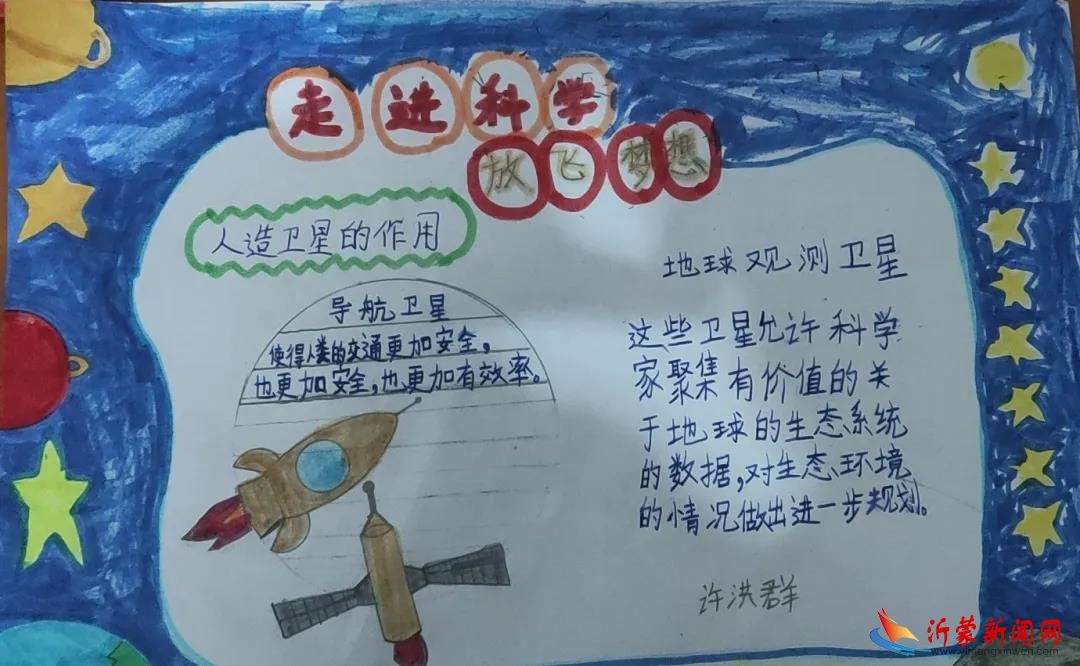 走进科学
放飞梦想
人造卫星的作用
导航卫星
使得人类的交通更加安全，
也更加安全，也更加有效率。
地球观测卫星
这些卫星允许科学
家聚集有价值的关
于地球的生态系统
的数据，对生态环境
的情况做出进一步规划。
许洪群
沂蒙新闻网
www.yimengxinwen.com